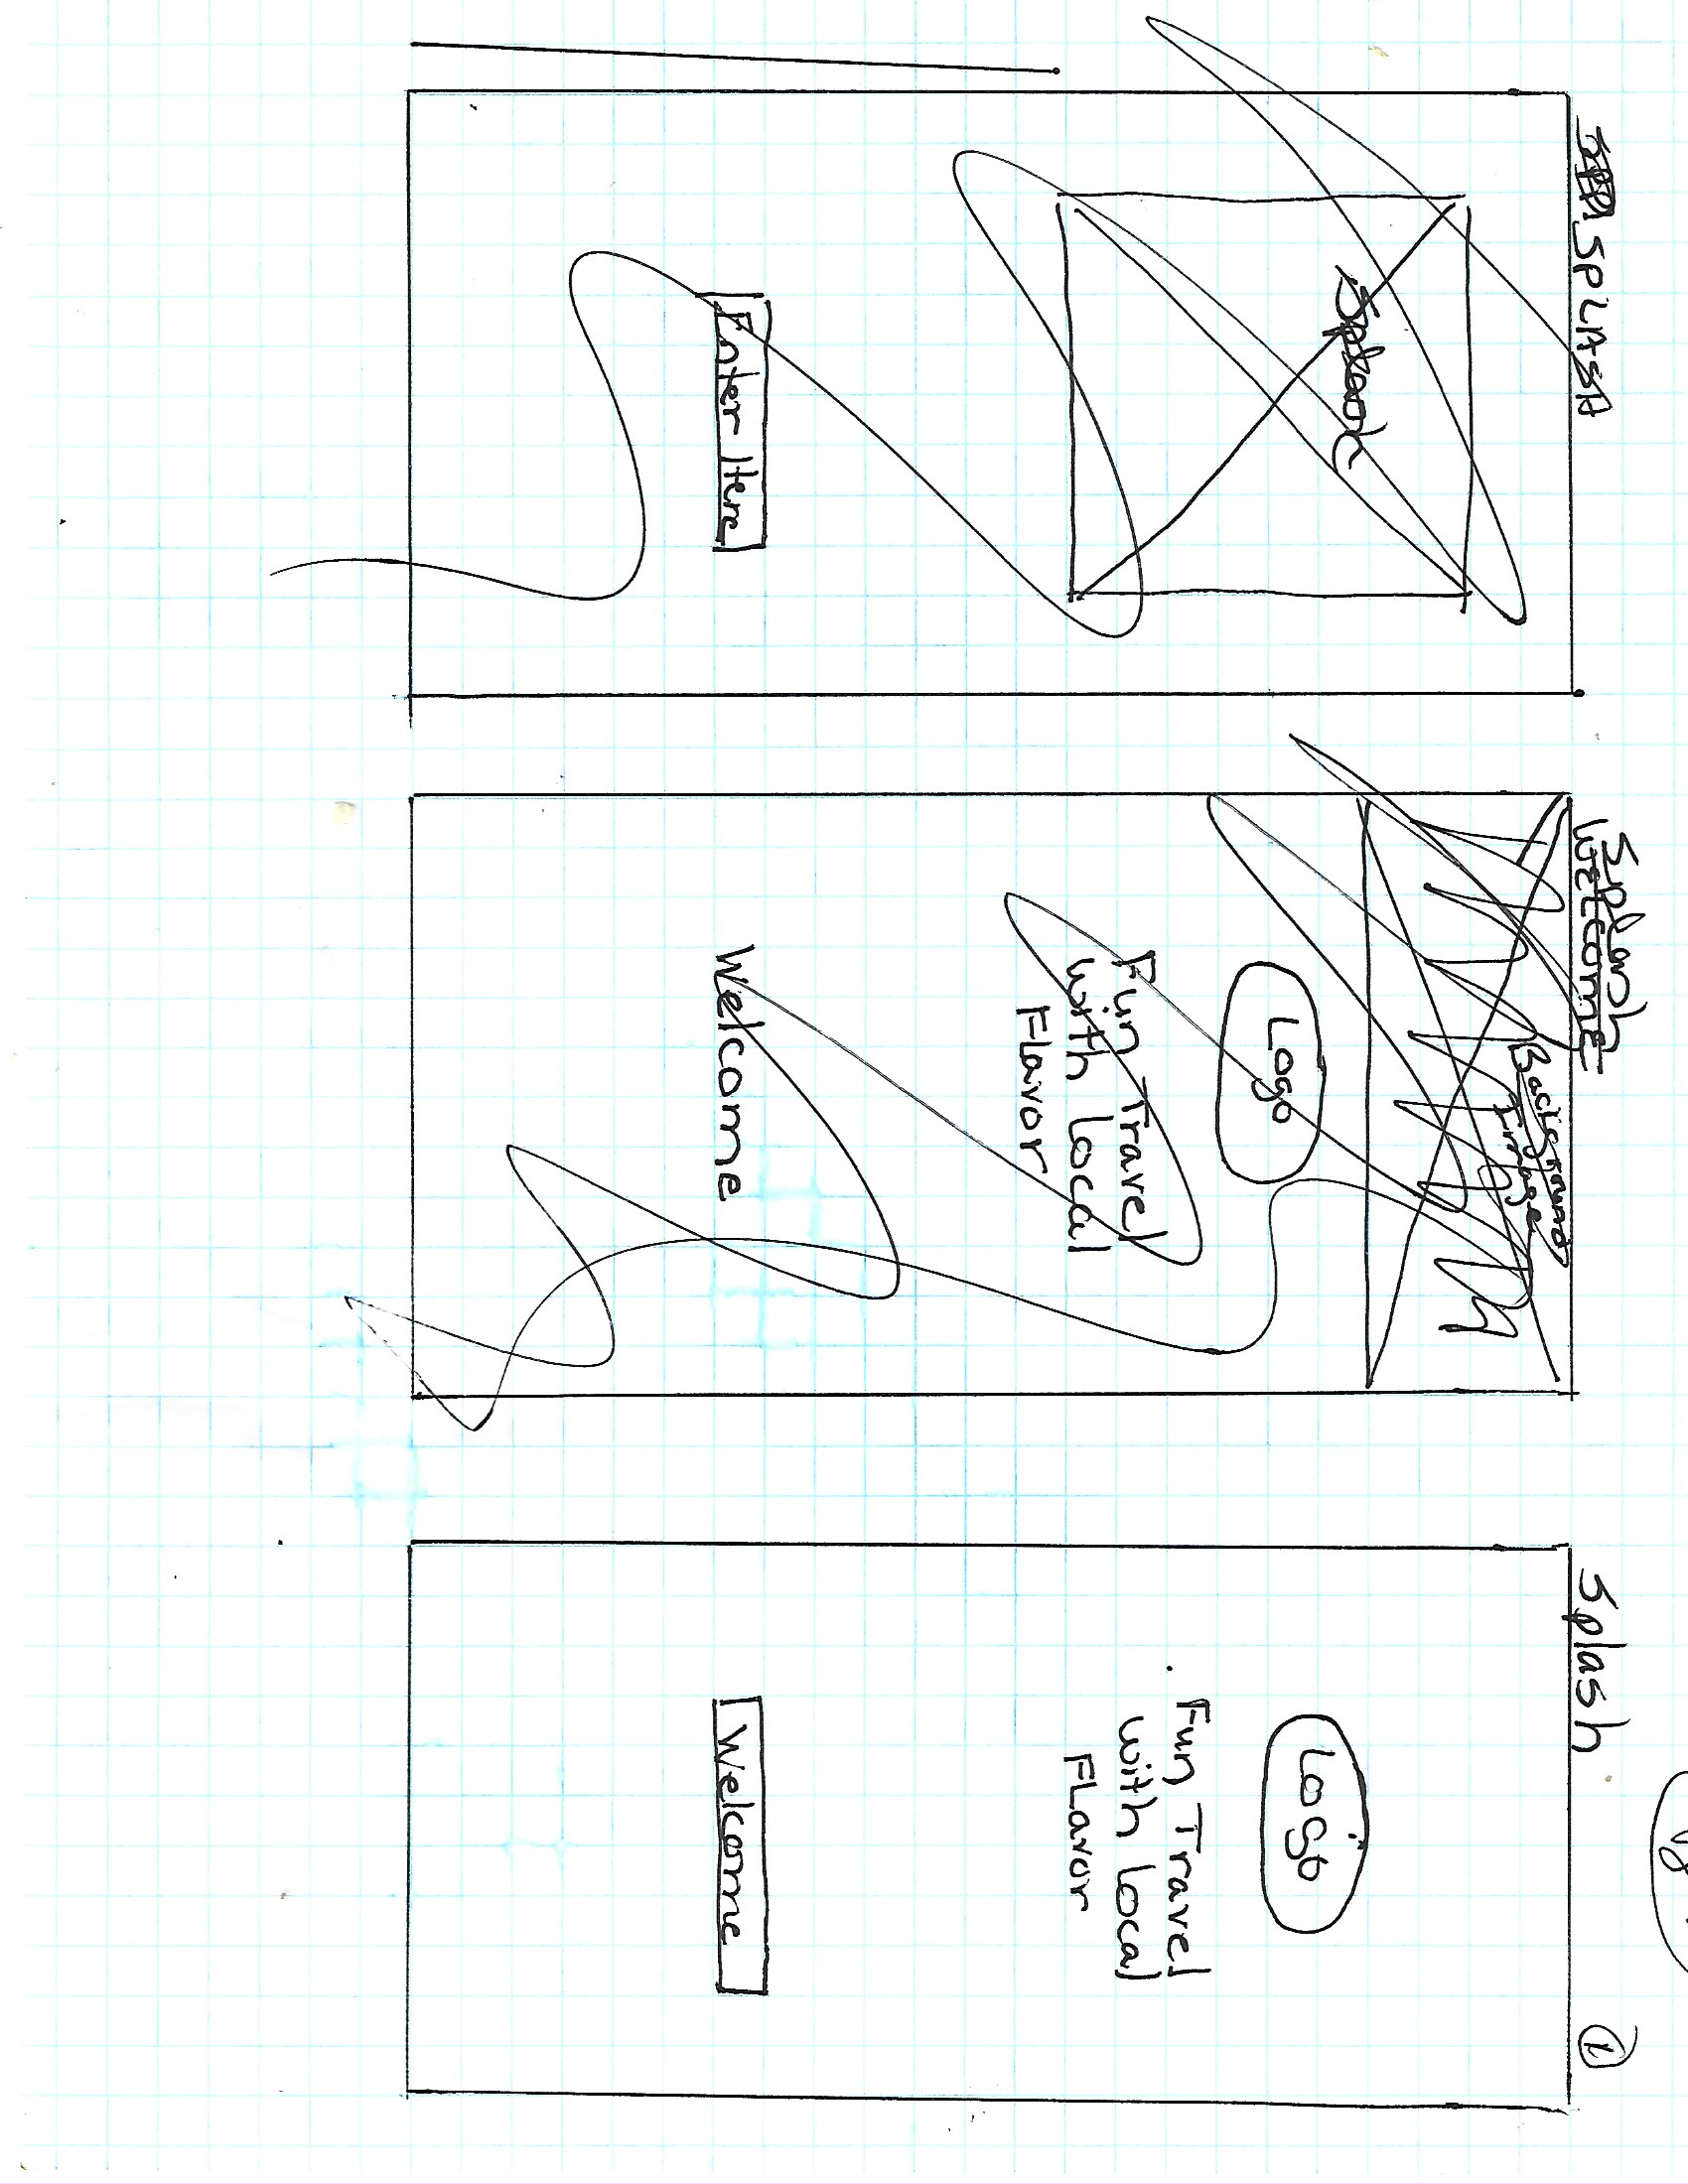 SPLASH
Splash
Enter Here
Splash
WELCOME
Background
Image
Logo
Fun Travel
with local
Flavor
Welcome
Splash
1
Logo
Fun Travel
with local
FLavor
Welcome